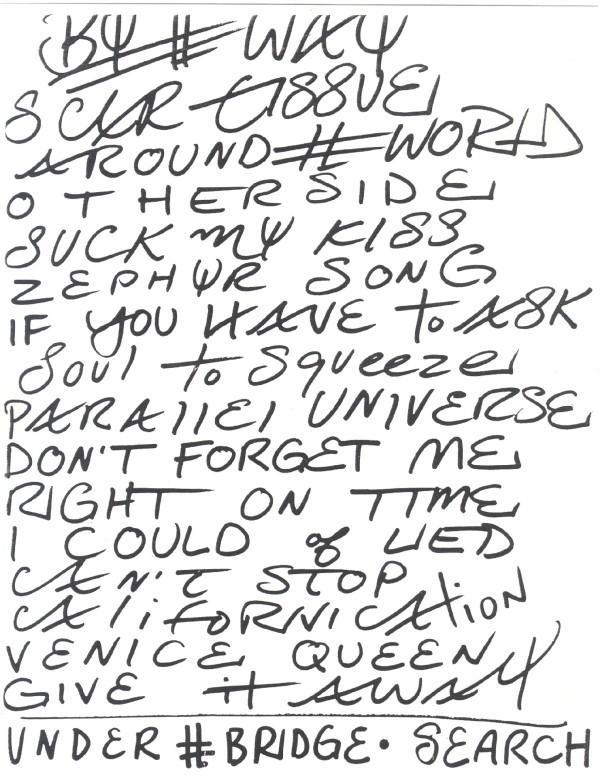 BY # WAY
SCAR TISSUE
AROUND # WORLD
OTHERSIDE
SUCK MY KISS
ZEPHYR SONG
IF YOU HAVE To ASK
Soul to Squeeze
PARAllEl UNIVERSE
DON'T FORGET ME
RIGHT ON TIME
I COULD of LIED
CAN'T STOP
CAliFORNICAtION
VENICE QUEEN
GIVE it AWAY
UNDER # BRIDGE • SEARCH